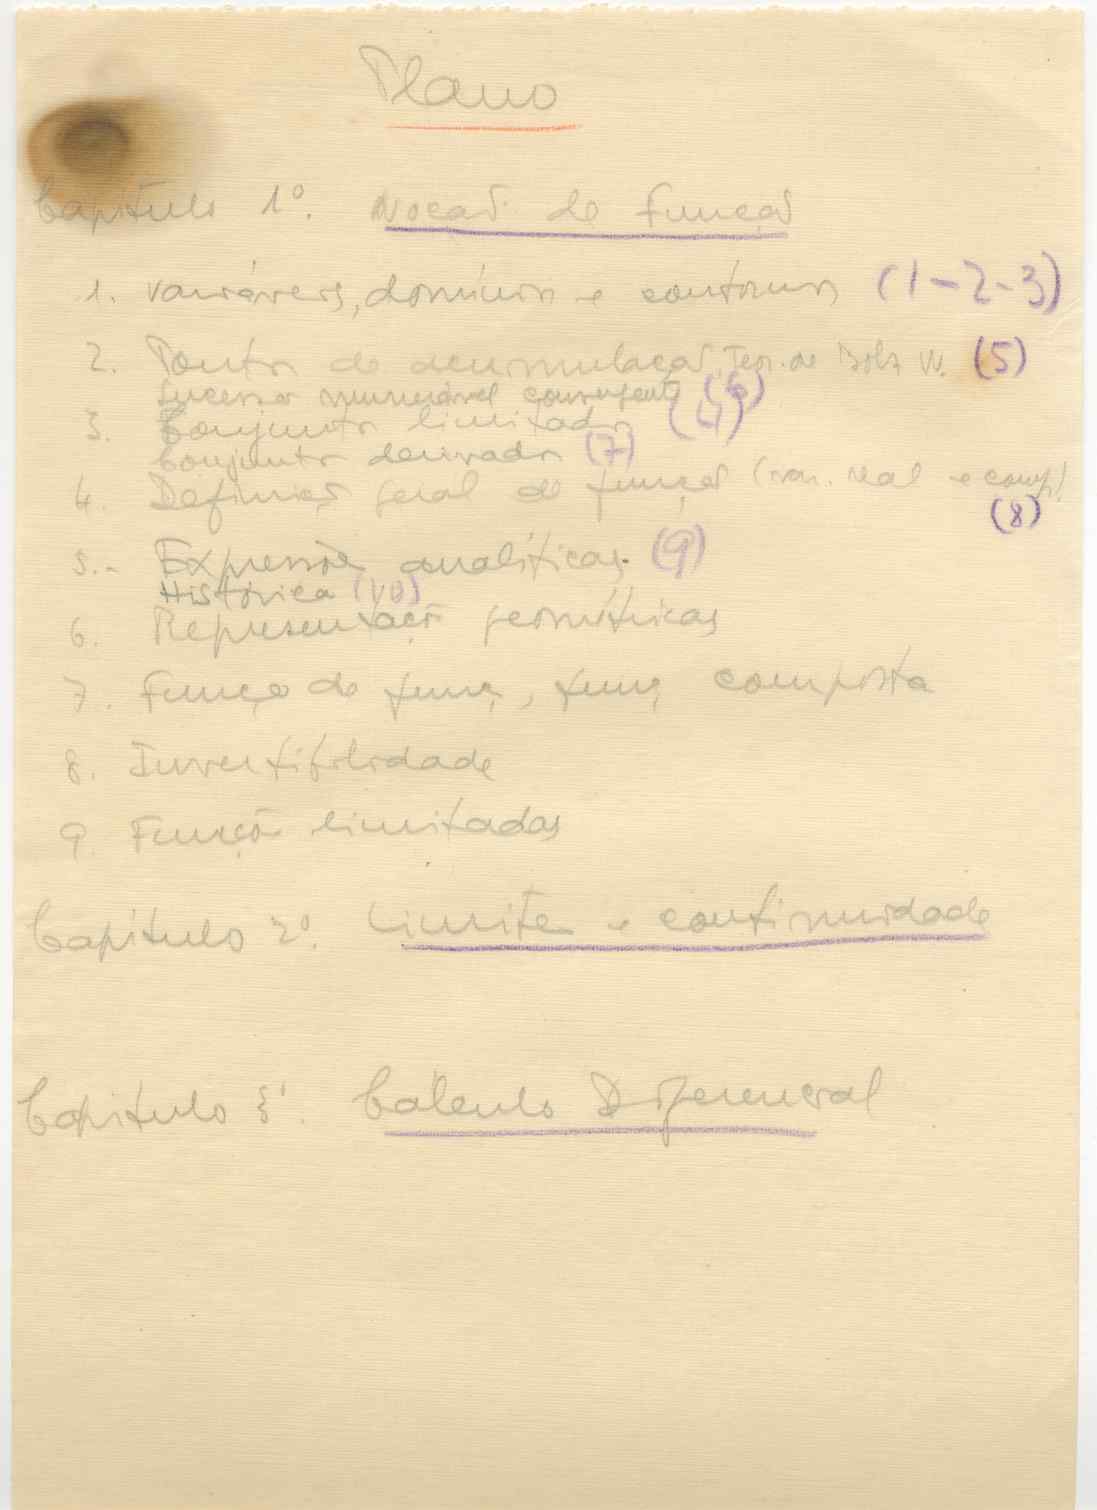 Plano
Capitulo 1º. Noção de função
1. Variáveis, domínios e contornos (1-2-3)
2. Ponto de acumulação. Teor. de Bolz W. (5)
Sucessão numerável convergente (6)
3. Conjunto limitado (4)
Conjunto derivado (7)
4. Definição geral de função (var. real e comp) (8)
5. - Expressões analíticas. (9)
Histórica (10)
6. Representação geométricas
7. Função de funç, funç composta
8. Invertibilidade
9. Função limitadas
Capitulo 2º. Limites e continuidade
Capitulo 3º. Cálculo Diferencial